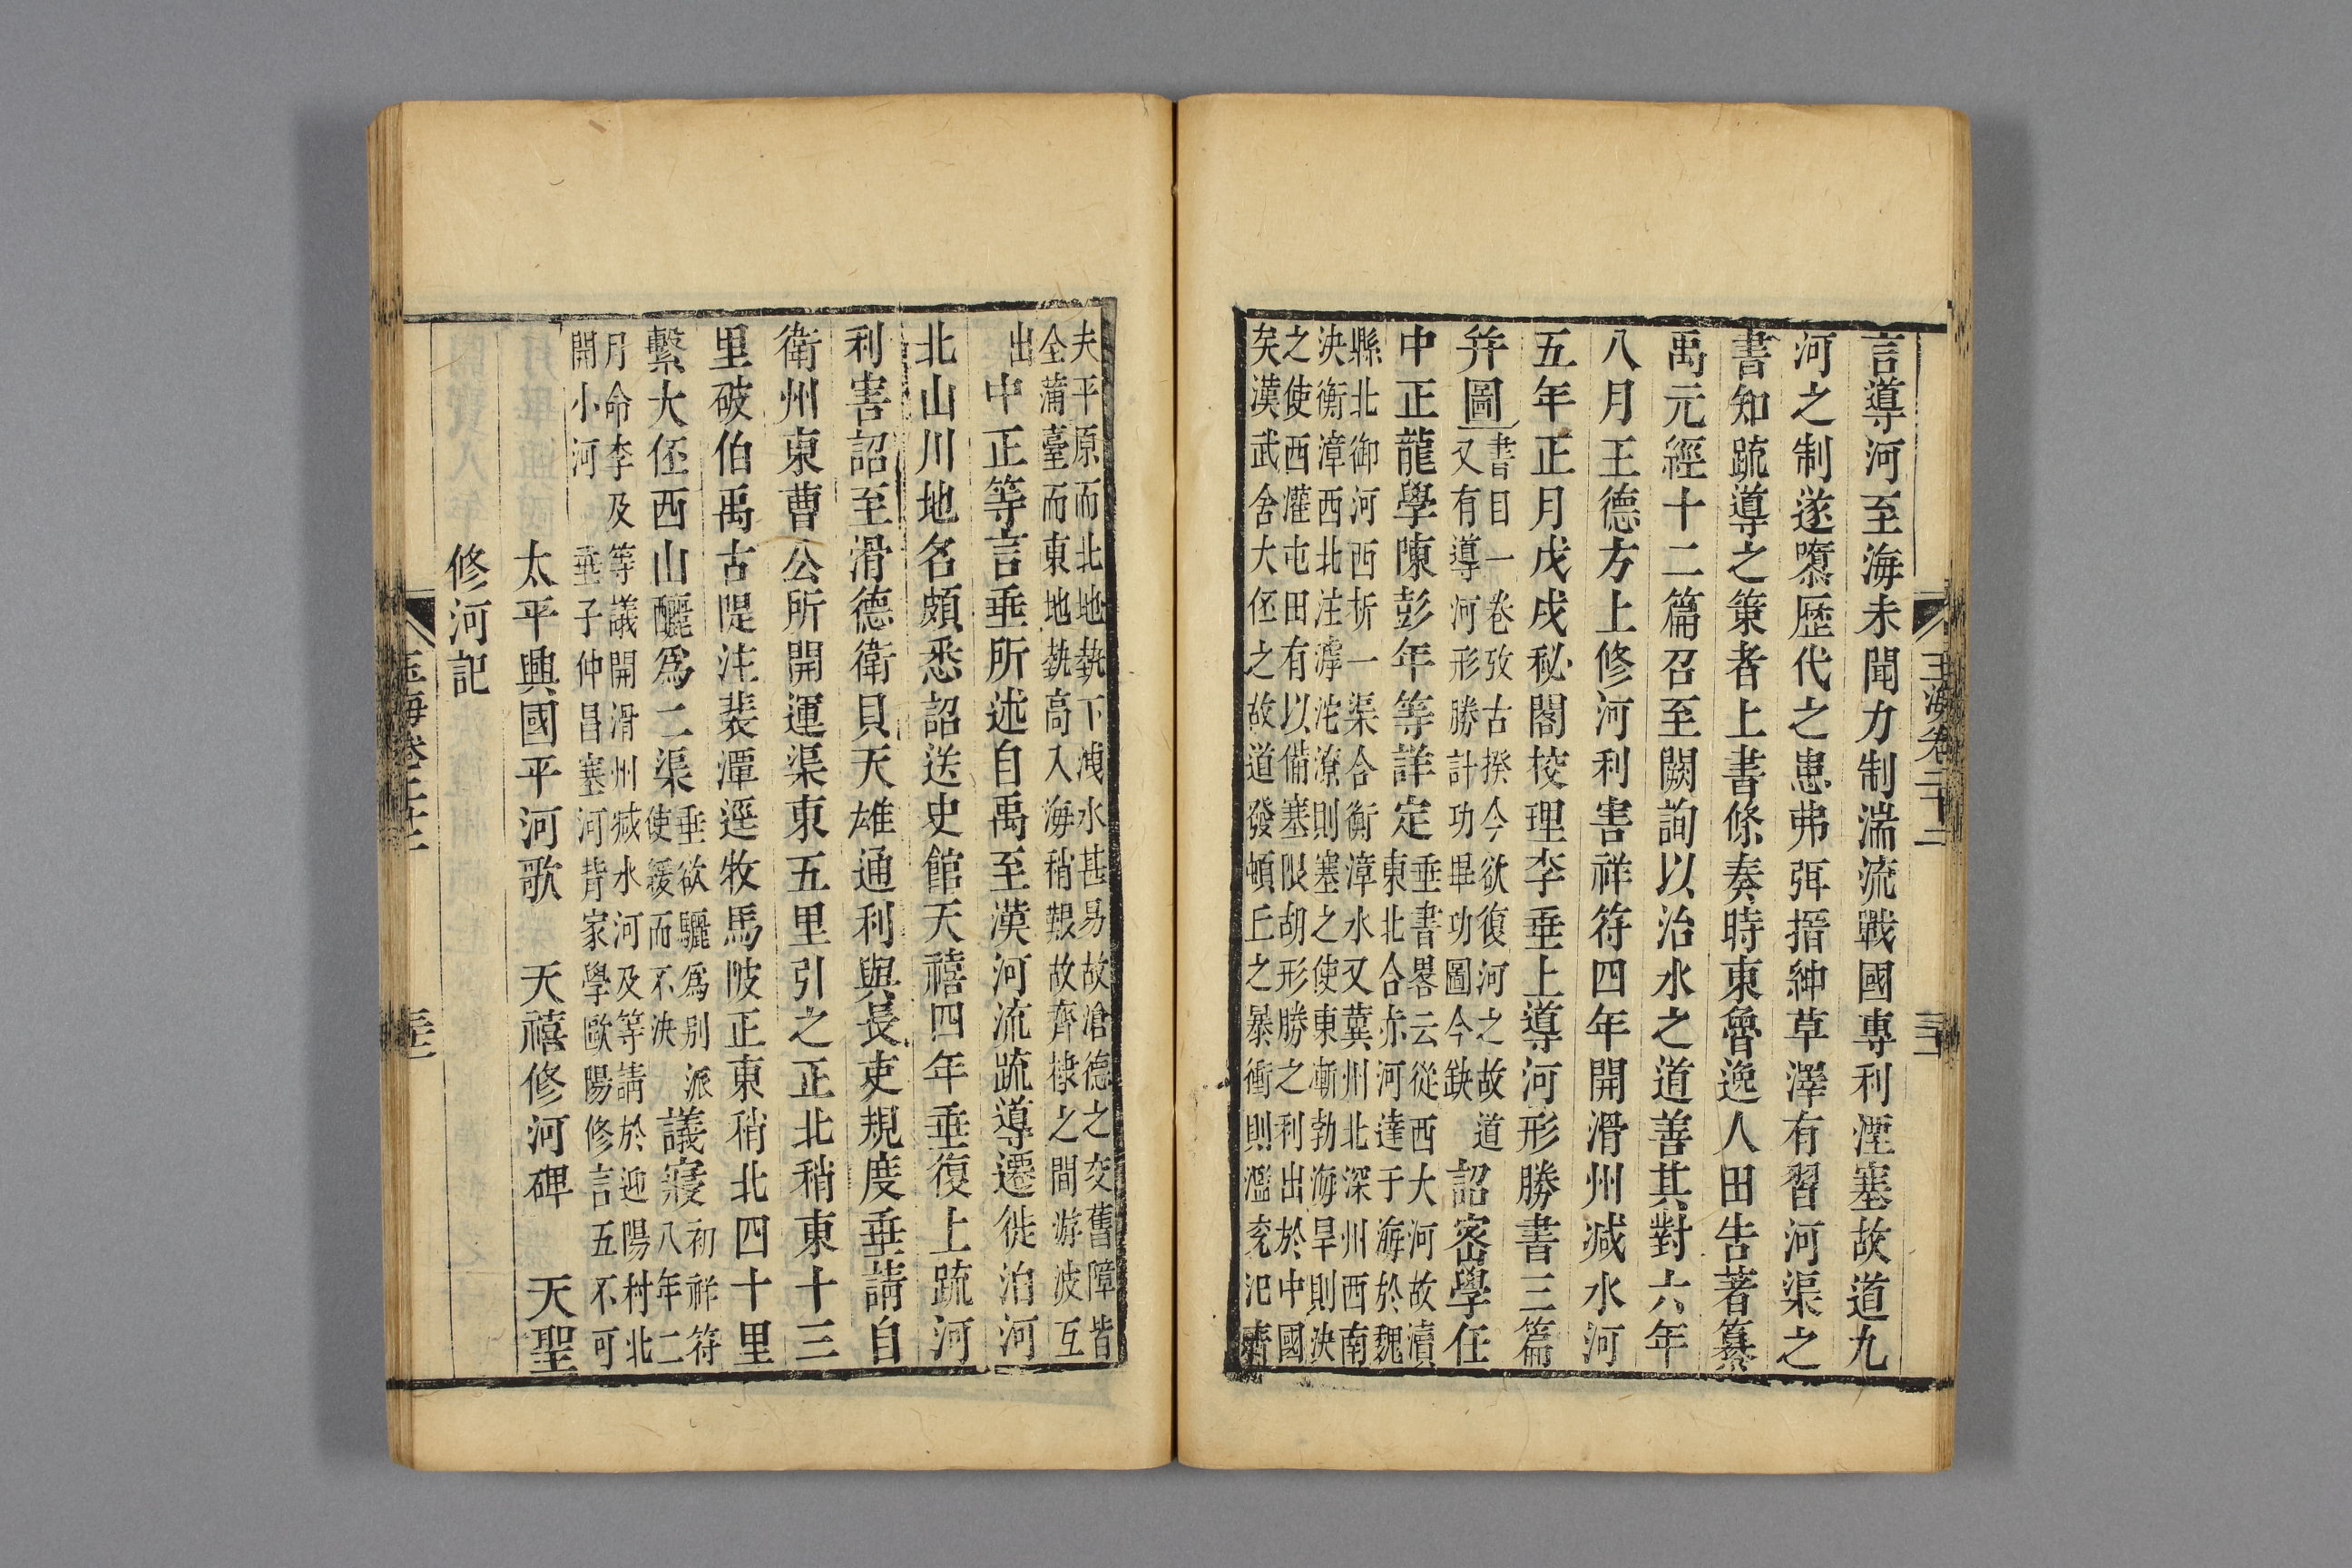 言導河至海未聞力制湍流戰國專利湮塞故道九
河之制遂隳歷代之患弗弭搢紳草澤有習河渠之
書知䟽導之策者上書條奏時東魯逸人田告著纂
禹元經十二篇召至闕詢以治水之道善其對六年
八月王德方上修河利害祥符四年開滑州減水河
五年正月戊戌秘閣校理李垂上導河形勝書三篇
幷圖
書目一卷攷古揆今欲復河之故道
又有導河形勝計功畢功圖今缺
詔宻學任
中正龍學陳彭年等詳定
垂書畧云從西大河故瀆
東北合赤河達于海於魏
縣北御河西折一渠合衡漳水又冀州北深州西南
決衡漳西北注滹沱潦則塞之使東漸勃海旱則決
之使西灌屯田有以備塞限胡形勝之利出於中國
矣漢武舍大伾之故道發頓丘之暴衝則濫兖汜濟
夫平原而北地埶下洩水甚易故滄德之交舊障皆
全蒲臺而東地埶高入海稍艱故齊棣之間游波互
出
中正等言垂所述自禹至漢河流䟽導遷徙泊河
北山川地名頗悉詔送史館天禧四年垂復上䟽河
利害詔至滑德衛貝天雄通利與長吏規度垂請自
衛州東曹公所開運渠東五里引之正北稍東十三
里破伯禹古隄注裴潭逕牧馬陂正東稍北四十里
繫大伾西山釃爲二渠
垂欲驪爲別派
使緩而不決
議寢
初祥符
八年二
月命李及等議開滑州减水河及等請於迎陽村北
開小河
垂子仲昌塞河背家學歐陽修言五不可
太平興國平河歌
天禧修河碑
天聖
修河記